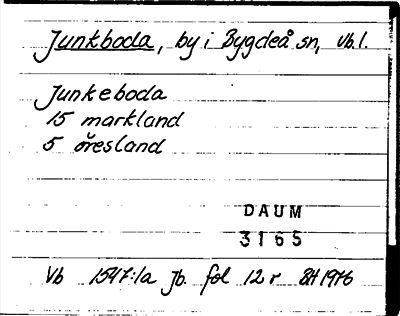 Junkboda, by i Bygdeå sn, Vb.l.
Junkeboda
15 markland
5 öresland
DAUM
3165
Vb 1547:1a Jb. fol 12 r BH 1976